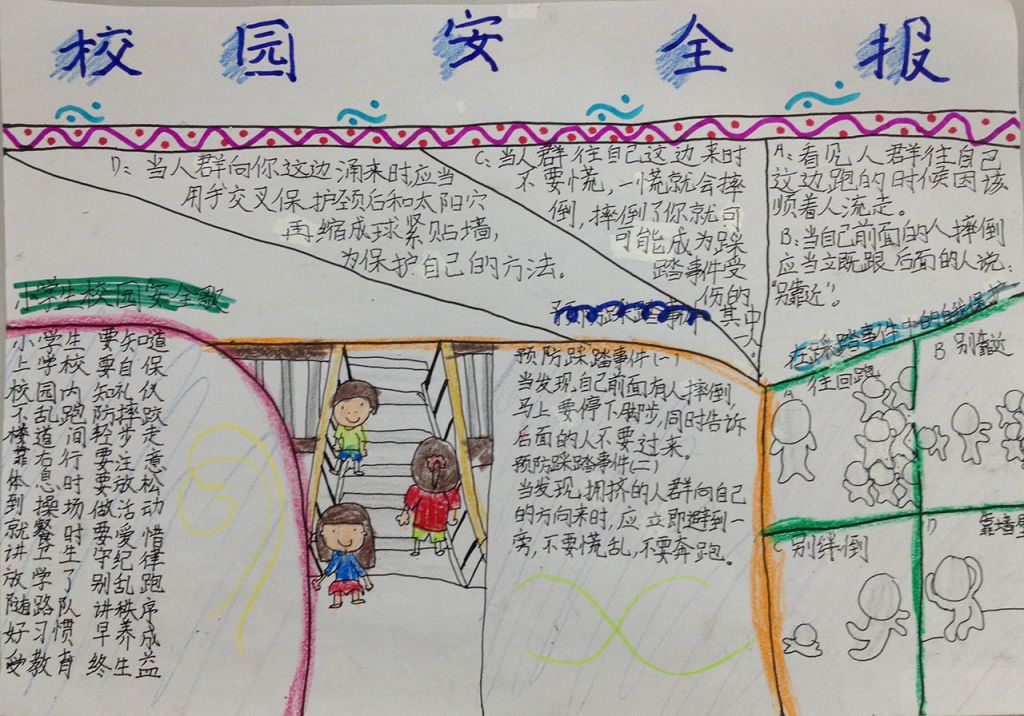 校园安全报
D：当人群向你这边涌来时，应当
用手交叉保护颈后和太阳穴
再缩成球紧贴墙，
为保护自己的方法。
C：当人群往自己这边来时
不要慌，一慌就会摔
倒，摔倒了你就可
可能成为踩
踏事件受
伤的
其中
一人。
A：看见人群往自己
这边跑的时候因该
顺着人流走。
B：当自己前面的人摔倒
应当立既跟后面的人说：
“别靠近”。
小学生校园安全歌
小学生 要知道
上学校 要自保
校园内 知礼仪
不乱跑 防摔跤
楼道间 轻步走
靠右行 要注意
体息时 要放松
到操场 做活动
就餐时 要爱惜
讲卫生 守纪律
放学了 别乱跑
随路队 讲秩序
好习惯 早养成
受教育 终生益
预防踩踏事件
预防踩踏事件（一）
当发现自己前面有人摔倒，
马上要停下脚步，同时告诉
后面的人不要过来。
预防踩踏事件（二）
当发现拥挤的人群向自己
的方向来时，应立即避到一
旁，不要慌乱，不要奔跑。
在踩踏事件中的自我保护
A 往回跑
B 别靠近
C 别绊倒
D 靠墙